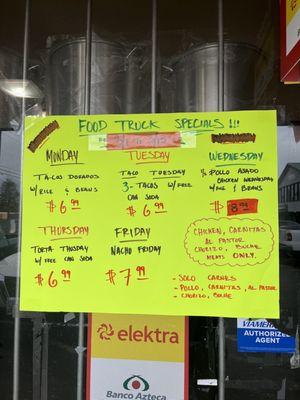 FOOD TRUCK SPECIALS !!!
MONDAY
TACOS DORADOS
W/ RICE & BEANS
$6.99
TUESDAY
TACO TUESDAY
3- TACOS W/ FREE
CAN SODA
$6.99
WEDNESDAY
½ POLLO ASADO
CHICKEN WEDNESDAY
W/ RICE & BEANS
$8.99
THURSDAY
TORTA THURSDAY
W/ FREE CAN SODA
$6.99
FRIDAY
NACHO FRIDAY
$7.99
CHICKEN, CARNITAS
AL PASTOR
CHORIZO, BUCHE
MEATS ONLY.
- SOLO CARNES
- POLLO, CARNITAS, AL PASTOR
- CHORIZO, BUCHE
elektra
Banco Azteca
VIAMERICAS
AUTHORIZED
AGENT